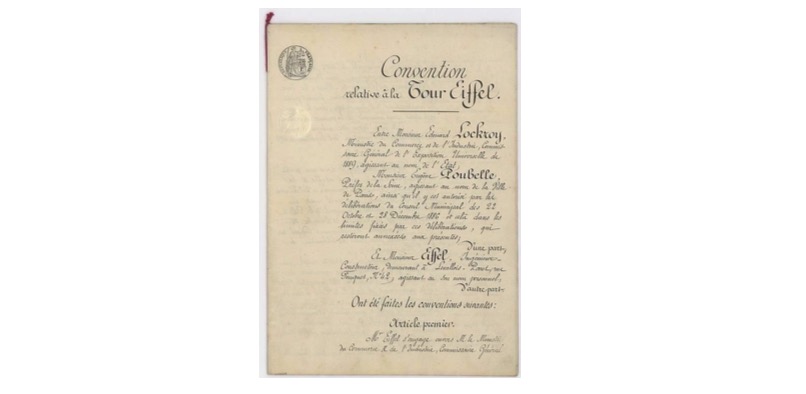 Convention
relative à la Tour Eiffel.
Entre Monsieur Edouard Lockroy,
Ministre du Commerce et de l'Industrie, Commis-
saire Général de l'Exposition Universelle de
1889, agissant au nom de l'Etat,
Monsieur Eugène Poubelle,
Préfet de la Seine, agissant au nom de la Ville
de Paris, ainsi qu'il y est autorisé par les
délibérations du Conseil Municipal des 22
Octobre et 28 Décembre 1886 et cela dans les
limites fixées par ces délibérations, qui
resteront annexées aux présentes,
D'une part,
Et Monsieur Eiffel, Ingénieur-
Constructeur, demeurant à Levallois-Perret, rue
Fouquet, N° 42, agissant en son nom personnel,
D'autre part-
Ont été faites les conventions suivantes:
Article premier.
Mr Eiffel s'engage envers M. le Ministre
du Commerce & de l'Industrie, Commissaire Général